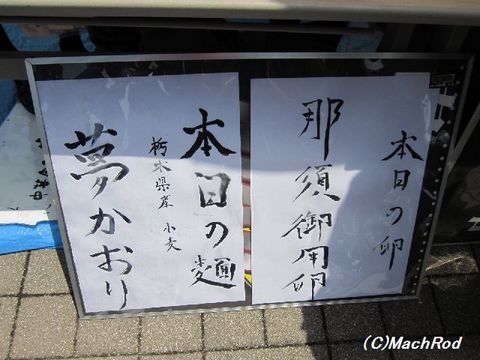 本日の卵
那須御用卵
本日の麺
栃木県産 小麦
夢かおり
(C)MachRod